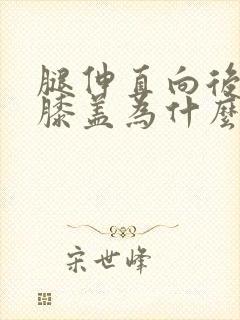 腿伸直向後
膝蓋為什麼
宋世峰